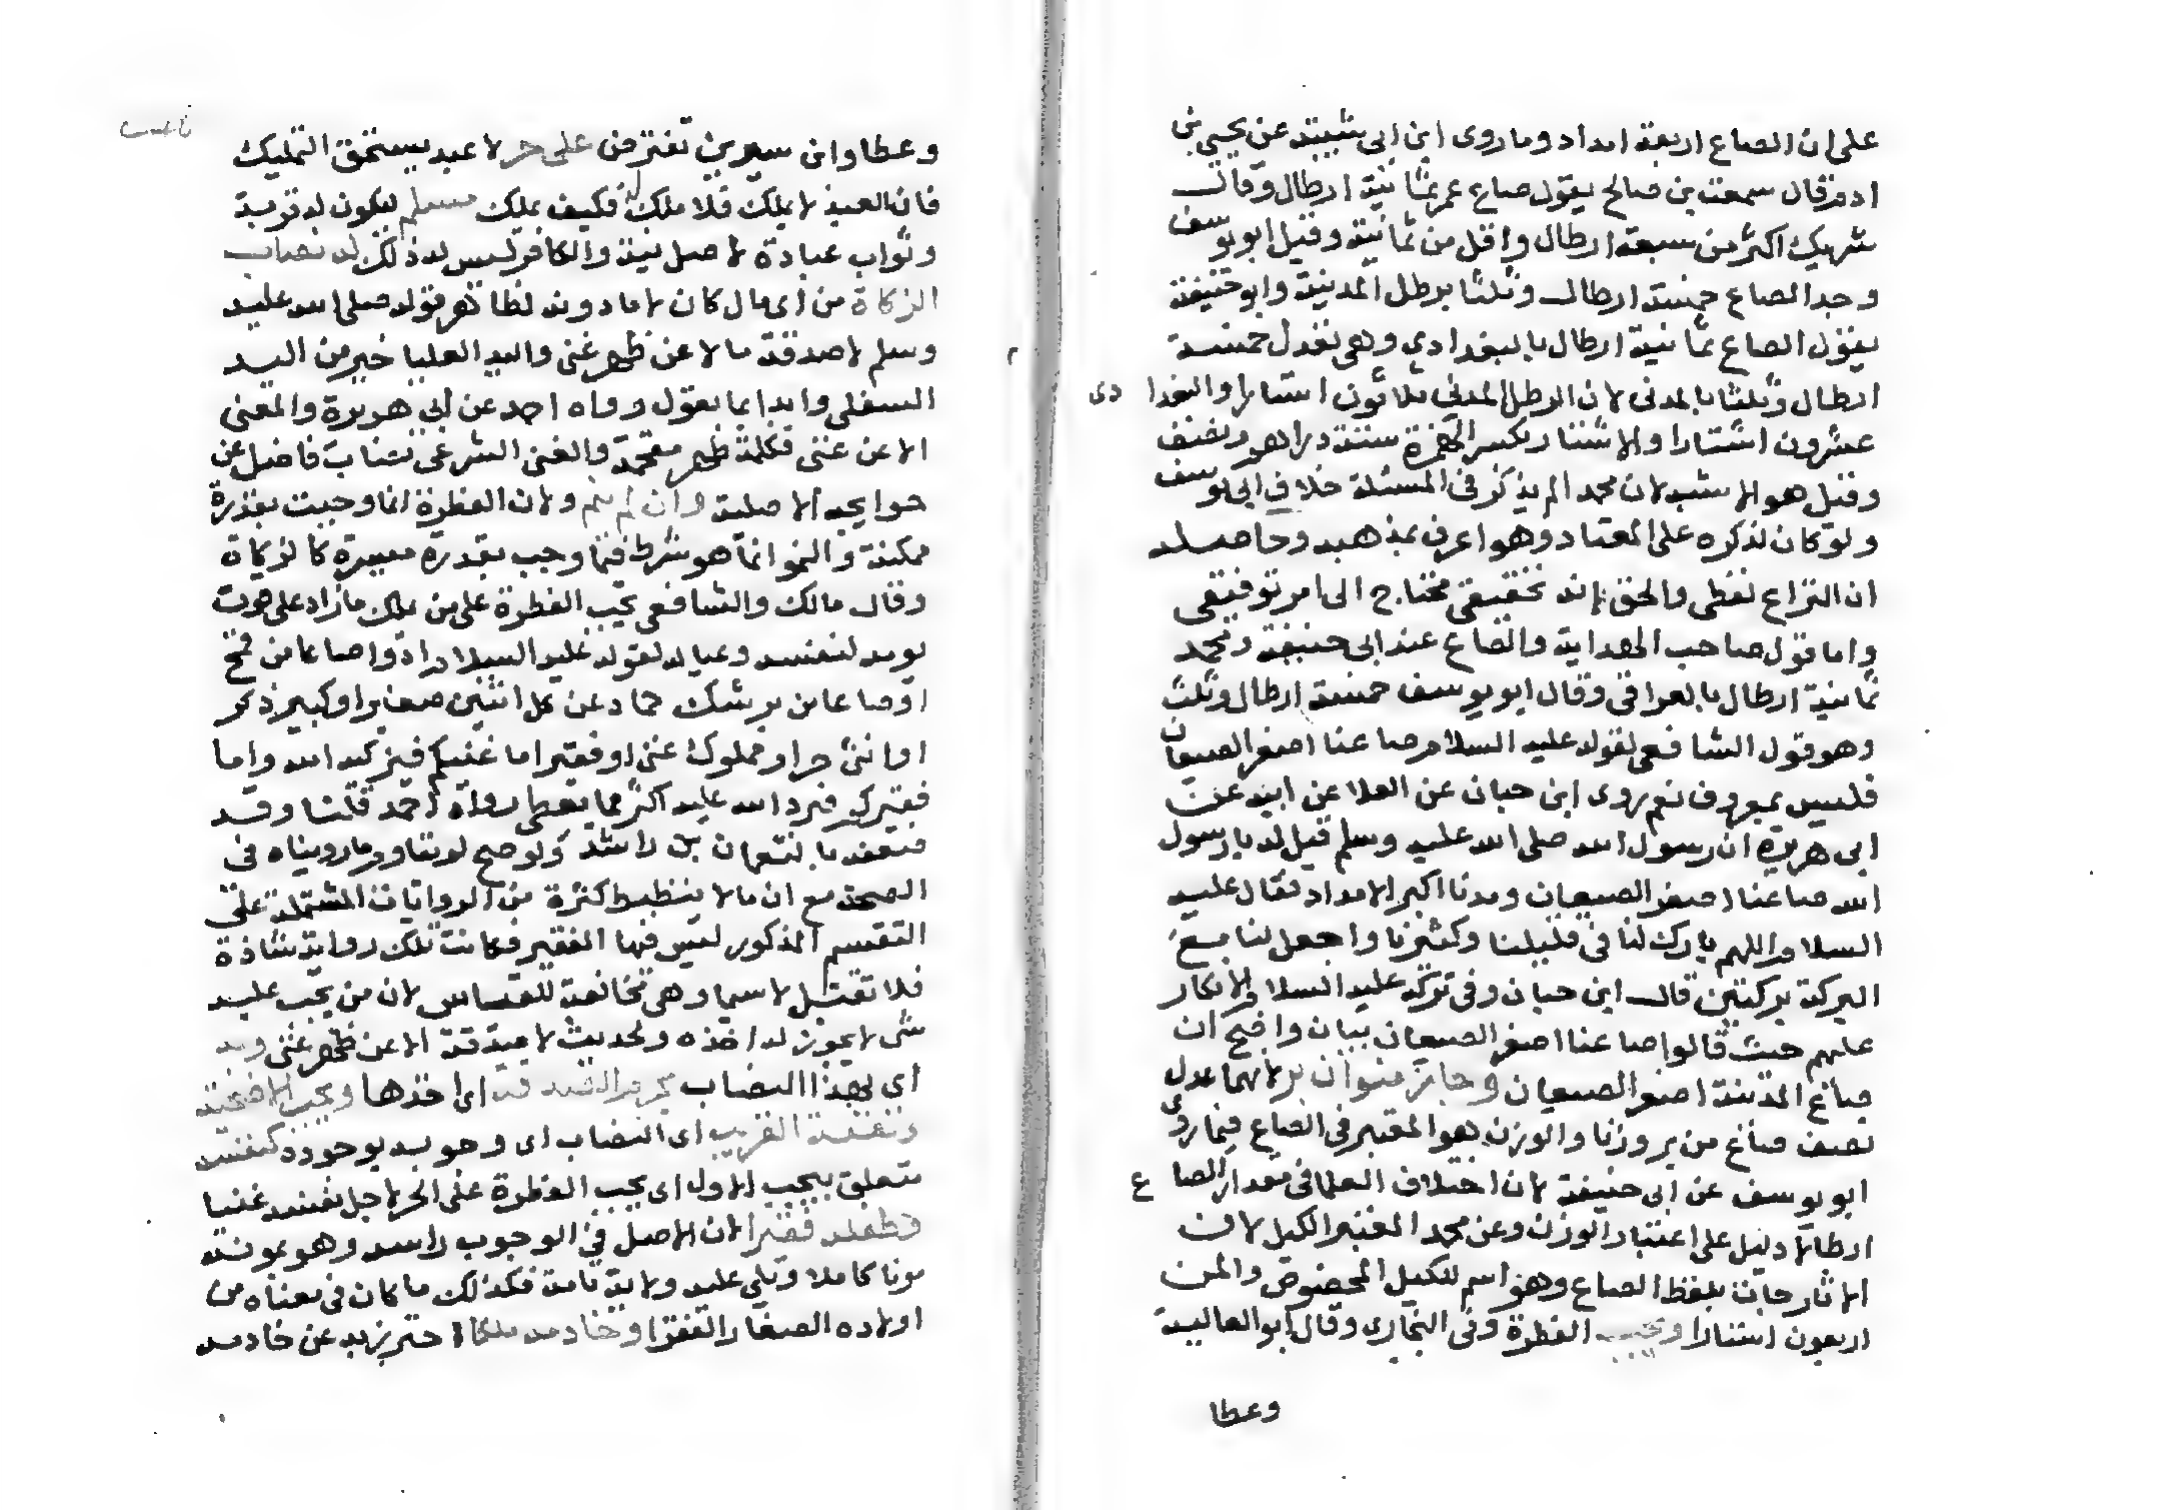 على ان الصاع اربعة امداد وما روى ابن ابى شيبة عن يحيى بن
ادم قال سمعت بن صالح يقول صاع عمر ثمانية ارطال وقال
شريك اكثر من سبعة ارطال واقل من ثمانية وقيل ابو يوسف
وجد الصاع خمسة ارطال وثلثا برطل المدينة وابو حنيفة
يقول الصاع ثمانية ارطال بالبغدادي وهى تعدل خمسة
ارطال وثلثا بالمدنى لان الرطل المدني ثلاثون استارا والبغدادى
عشرون استارا والاستار بكسر الهمزة ستة دراهم ونصف
وقيل هو الاشبه لان محمدا لم يذكر فى المسئلة خلاف ابى يوسف
ولو كان لذكره على المعتاد وهو اعرف بمذهبه وحاصله
ان النزاع لفظى والحق انه تحقيقى محتاج الى امر توفيقى
واما قول صاحب الهداية والصاع عند ابى حنيفة ومحمد
ثمانية ارطال بالعراقى وقال ابو يوسف خمسة ارطال وثلث
وهو قول الشافعى لقوله عليه السلام صاعنا اصغر الصيعان
فليس بمعروف نعم روى ابن حبان عن العلا عن ابيه عن
ابى هريرة ان رسول الله صلى الله عليه وسلم قيل له يا رسول
الله صاعنا اصغر الصيعان ومدنا اكبر الامداد فقال عليه
السلام اللهم بارك لنا فى قليلنا وكثيرنا واجعل لنا مع
البركة بركتين قال ابن حبان وفى تركه عليه السلام الانكار
عليهم حيث قالوا صاعنا اصغر الصيعان بيان واضح ان
صاع المدينة اصغر الصيعان وجائز منوان بر لانهما عدل
نصف صاع من بر وزنا والوزن هو المعتبر فى الصاع فيما روى
ابو يوسف عن ابى حنيفة لان اختلاف العلما فى مقدار الصاع
ارطالا دليل على اعتبار الوزن وعن محمد المعتبر الكيل لان
الاثار جاءت بلفظ الصاع وهو اسم للكيل المخصوص والمن
اربعون استارا وتجب الفطرة وفى البخارى وقال ابو العالية
وعطا
وعطا وابن سيرين تفترض على حر لا عبد يستحق التمليك
فان العبد لا يملك فلا ملك له فكيف يملك مسلم ليكون له قربة
وثواب عبادة لاصل نية والكافر ليس له ذلك له نصاب
الزكاة من اى مال كان لا ما دونه لظاهر قوله صلى الله عليه
وسلم لا صدقة مالا عن ظهر غنى واليد العليا خير من اليد
السفلى وابدا بما تعول رواه احمد عن ابى هريرة والمعنى
الا عن غنى فكلمة ظهر مقحمة والغنى الشرعى نصاب فاضل عن
حوايجه الاصلية وان لم ينم ولان الفطرة انما وجبت بقدرة
ممكنة والنمو انما هو شرط فيما وجب بقدرة ميسرة كالزكاة
وقال مالك والشافعى تجب الفطرة على من ملك ما زاد على قوت
يومه لنفسه وعياله لقوله عليه السلام ادوا صاعا من قمح
او صاعا من بر شك حماد عن كل اثنين صغير او كبير ذكر
او انثى حر او مملوك غنى او فقير اما غنيكم فيزكيه الله واما
فقيركم فيرد الله عليه اكثر مما يعطى رواه احمد قلنا وقد
ضعفه بالنعمان بن راشد ولو صح لا يقاوم ما رويناه فى
الصحة مع ان ما لا ينضبط كثرة من الروايات المشتملة على
التقسيم المذكور ليس فيها الفقير فكانت تلك رواية شاذة
فلا تقبل لا سيما وهى مخالفة للقياس لان من يجب عليه
شى لا يجوز له اخذه ولحديث لا صدقة الا عن ظهر غنى وبه
اى بهذا النصاب تحرم الصدقة اى اخذها وتجب الاضحية
ونفقة القريب اى النصاب اى وجوبه بوجوده لنفسه
متعلق بيجب الاول اى يجب الفطرة على الحر لاجل نفسه غنيا
وطفله فقيرا لان الاصل فى الوجوب راسه وهو يمونه
مونا كاملا ويلى عليه ولاية تامة فكذلك ما كان فى معناه من
اولاده الصغار الفقرا وخادمه ملكا احترز به عن خادمه